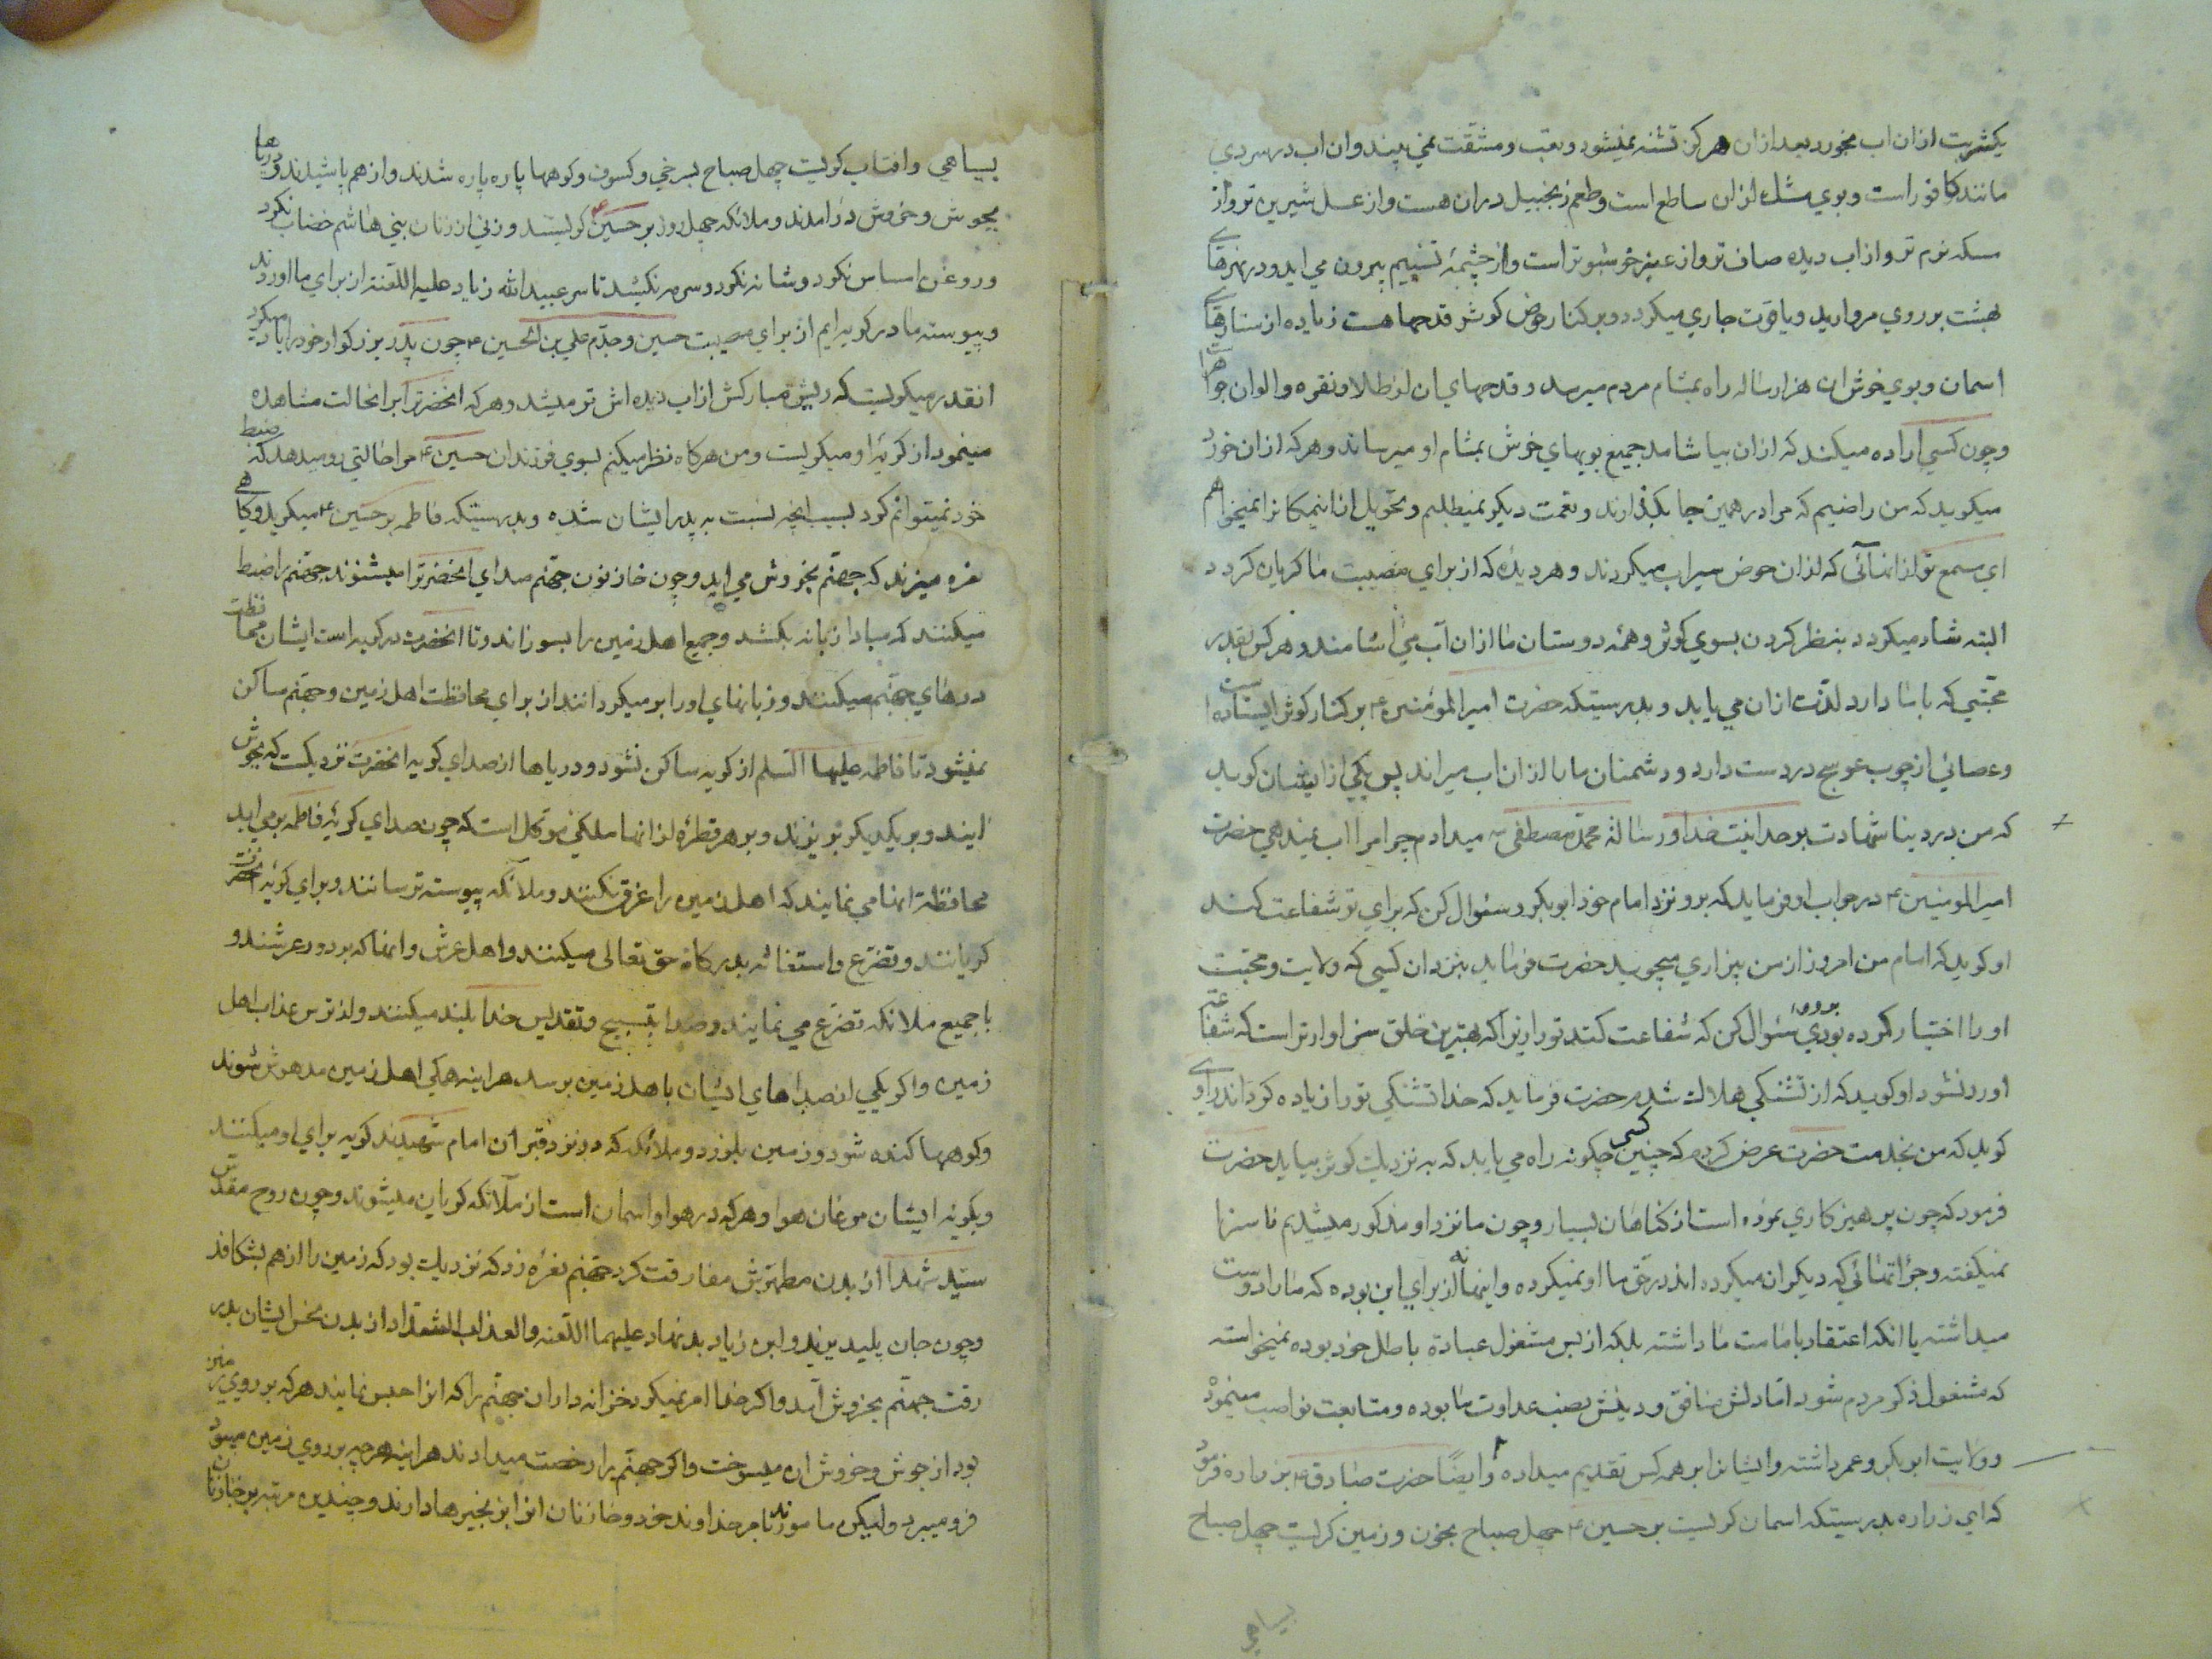 یکشربت ازان اب میخورد بعد ازان هرکز تشنه نمیشود و تعب و مشقت نمی بیند و ان اب در سردی
مانند کافور است و بوی مشک ازان ساطع است و طعم زنجبیل دران هست و از عسل شیرین تر و از
مسکه نرم تر و از اب دیده صاف تر و از عنبر خوشبوتر است و از چشمهٔ تسنیم بیرون می اید و در نهرهای
بهشت بر روی مروارید و یاقوت جاری میکردد و بر کنار حوض کوثر قدحها هست زیاده از ستارهای
اسمان و بوی خوش ان هزار ساله راه بمشام مردم میرسد و قدحهای ان از طلا و نقره و الوان جواهر است
و چون کسی اراده میکند که ازان بیاشامد جمیع بویهای خوش بمشام او میرساند و هر که ازان خورد
میکوید که من راضیم که مرا در همین جا بکذارند و نعمت دیکر نمیطلبم و تحویل از اینمکانرا نمیخواهم
ای مسمع تو از انهائی که ازان حوض سیراب میکردند و هر دیدهٔ که از برای مصیبت ما کریان کردد
البته شاد میکردد بنظر کردن بسوی کوثر و همه دوستان ما ازان آب می اشامند و هر کس بقدر
محبتی که با ما دارد لذت ازان می یابد و بدرستیکه حضرت امیر المومنین ع بر کنار کوثر ایستاده است
و عصائی از چوب عوسج در دست دارد و دشمنان ما را ازان اب میراند پس یکی از ایشان کوید
که من در دنیا شهادت بوحدانیت خدا و رسالة محمد مصطفی ص میدادم چرا مرا اب نمیدهی حضرت
امیر المومنین ع در جواب او فرماید که برو نزد امام خود ابوبکر و سئوال کن که برای تو شفاعت کند
او کوید که امام من امروز از من بیزاری میجوید حضرت فرماید بنزد ان کسی که ولایت و محبت
او را اختیار کرده بودی برو و سئوال کن که شفاعت کند تو را زیرا که بهترین خلق سزاوارتر است که شفاعتش
او رد نشود او کوید که از تشنکی هلاک شدم حضرت فرماید که خدا تشنکی تو را زیاده کرداند راوی
کوید که من بخدمت حضرت عرض کردم که چنین کسی چکونه راه می یابد که به نزدیک کوثر بیاید حضرت
فرمود که چون پرهیزکاری نموده است از کناهان بسیار و چون ما نزد او مذکور میشدیم ناسزا
نمیکفته و جرأتهائی که دیکران میکرده اند در حق ما او نمیکرده و اینها نه از برای این بوده که ما را دوست
میداشته یا انکه اعتقاد بامامت ما داشته بلکه از بس مشغول عبادة باطل خود بوده نمیخواسته
که مشغول ذکر مردم شود اما دلش منافق و دینش نصب عداوت ما بوده و متابعت نواصب مینموده
و ولایت ابوبکر و عمر داشته و ایشانرا بر همه کس تقدیم میداده و ایضًا حضرت صادق ع بزراره فرمود
که ای زراره بدرستیکه اسمان کریست بر حسین ع چهل صباح بخون و زمین کریست چهل صباح
بسیاهی
بسیاهی و افتاب کریست چهل صباح بسرخی و کسوف و کوهها پاره پاره شدند و از هم پاشیدند و دریاها
بجوش و خروش درامدند و ملائکه چهل روز بر حسین ع کریستند و زنی از زنان بنی هاشم خضاب نکرد
و روغن امساس نکرد و شانه نکرد و سرمه نکشد تا سر عبید الله زیاد علیه اللعنة از برای ما اوردند
و پیوسته ما در کریه ایم از برای مصیبت حسین و جدم علی بن الحسین ع چون پدر بزرکوار خود را یاد میکرد
انقدر میکریست که ریش مبارکش از اب دیده اش تر میشد و هر که انحضرترا بر انحالت مشاهده
مینمود از کریهٔ او میکریست و من هرکاه نظر میکنم بسوی فرزندان حسین ع مرا حالتی رو میدهد که ضبط
خود نمیتوانم کرد بسبب انچه نسبت به پدر ایشان شده و بدرستیکه فاطمه بر حسین ع میکرید و کاهی
نعره میزند که جهنم بخروش می اید و چون خازنون جهنم صدای انحضرترا میشنوند جهنم را ضبط
میکنند که مبادا زبانه بکشد و جمیع اهل زمین را بسوزاند و تا انحضرت در کریه است ایشان محافظت
درهای جهنم میکنند و زبانهای او را بر میکردانند از برای محافظت اهل زمین و جهنم ساکن
نمیشود تا فاطمه علیها السلم از کریه ساکن نشود و دریاها از صدای کریه انحضرت نزدیکست که بجوش
ایند و بر یکدیکر بریزند و بر هر قطرهٔ از انها ملکی موکل است که چون صدای کریهٔ فاطمه بر می اید
محافظة انها می نمایند که اهل زمین را غرق نکنند و ملائکه پیوسته ترسانند و برای کریهٔ انحضرت
کریانند و تضرع و استغاثه بدرکاه حق تعالی میکنند و اهل عرش و انها که بر دور عرشند و
با جمیع ملائکه تضرع می نمایند و صدا بتسبیح و تقدیس خدا بلند میکنند و از ترس عذاب اهل
زمین و اکر یکی از صداهای ایشان باهل زمین برسد هراینه همکی اهل زمین مدهوش شوند
و کوهها کنده شود و زمین بلرزد و ملائکه که در نزد قبر ان امام شهیدند کریه برای او میکنند
و بکریه ایشان مرغان هوا و هر که در هوا و اسمان است از ملآئکه کریان میشوند و چون روح مقدس
سید شهدا از بدن مطهرش مفارقت کرد جهنم نعرهٔ زد که نزدیک بود که زمین را از هم بشکافد
و چون جان پلید یزید و ابن زیاد بدنهاد علیهما اللعنه و العذاب الشداد از بدن نحس ایشان بدر
رفت جهنم بخروش آمد و اکر خدا امر نمیکرد خزانه داران جهنم را که انرا حبس نمایند هر که بر روی زمین
بود از جوش و خروش ان میسوخت و اکر جهنم را رخصت میدادند هراینه هرچه بر روی زمین میبود
فرو میبرد ولیکن مامورند بامر خداوند خود و خازنان انرا بزنجیرها دارند و چندین مرتبه بر خازنان